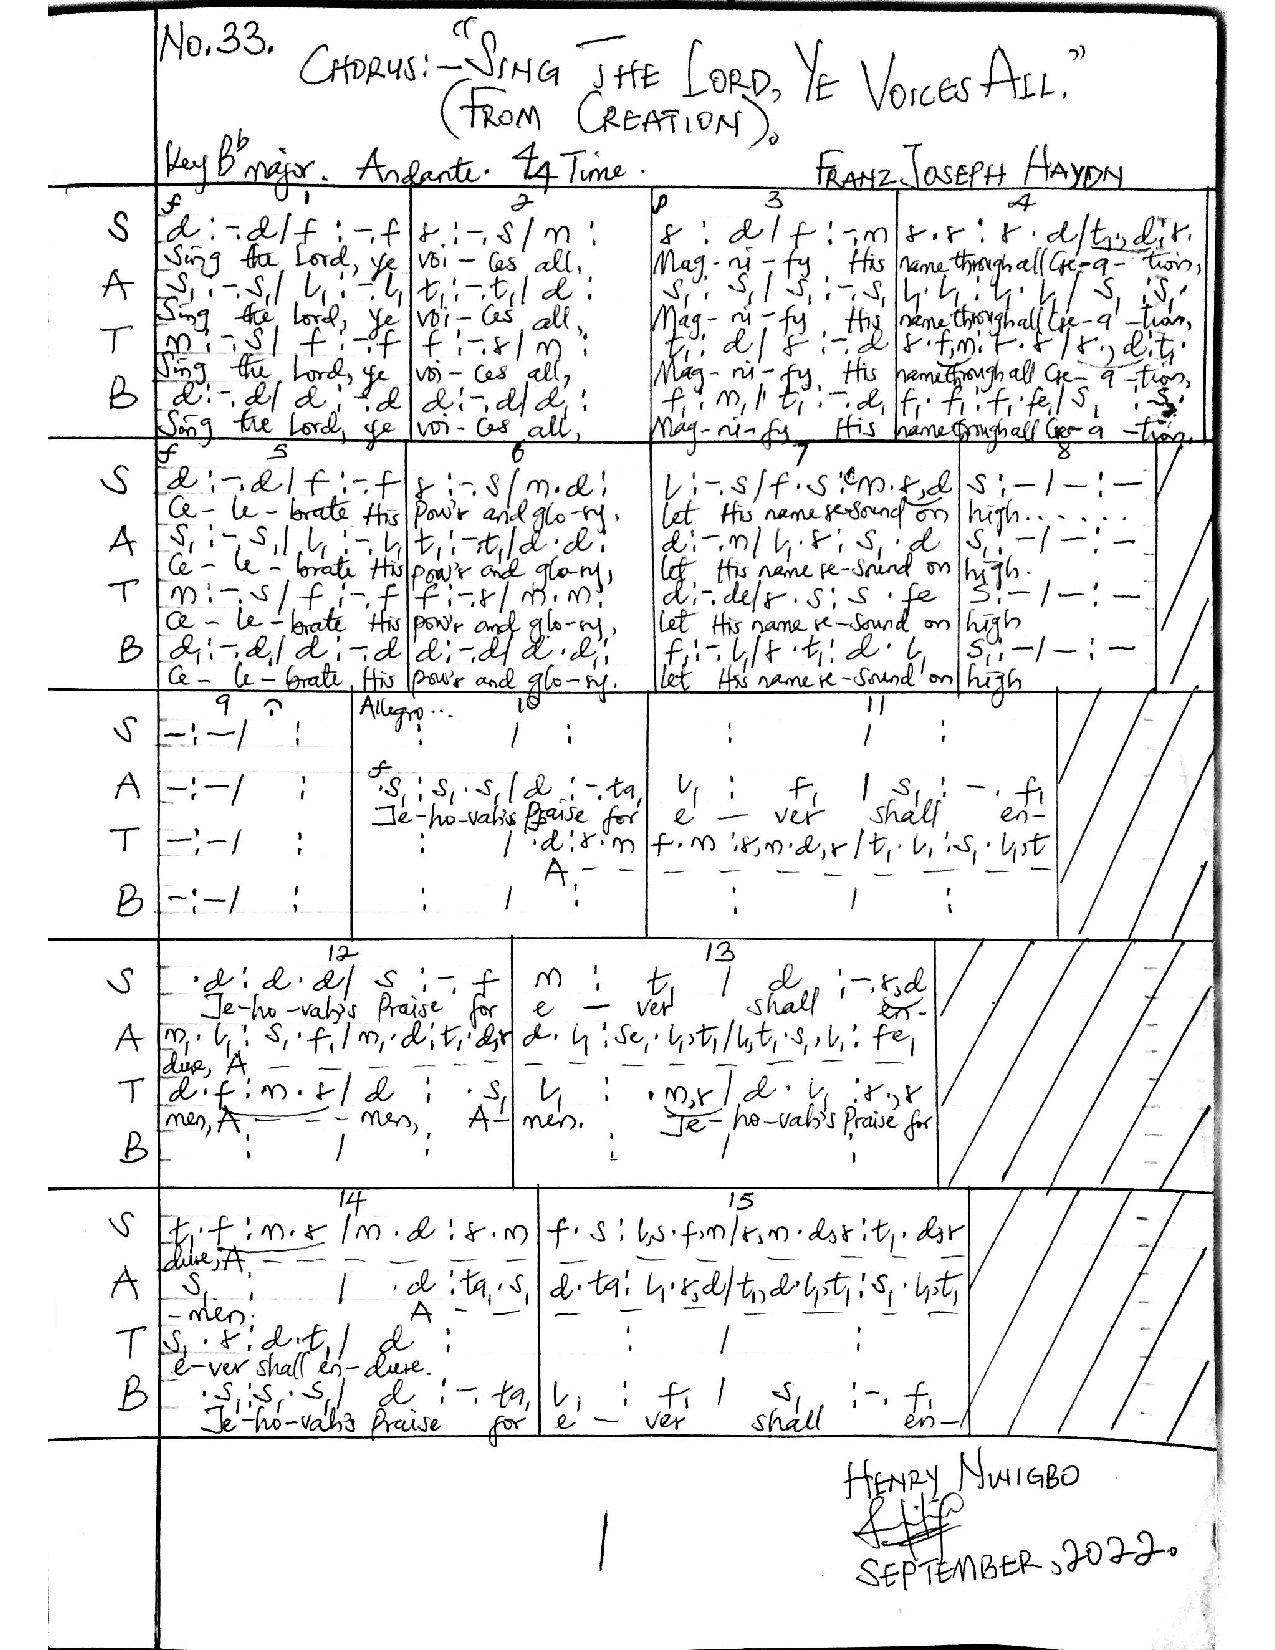 No. 33.
CHORUS:- "SING THE LORD, YE VOICES ALL."
(FROM CREATION).
Key Bb major. Andante. 4/4 Time. FRANZ JOSEPH HAYDN
f 1 2 p 3 4
S d :-.d/ f :-.f r :-.s/ m : r : d/ f :-.m r.r : r.d/t₁,d:r.
Sing the Lord, ye voi-ces all, Mag-ni-fy His name through all Cre-a-tion,
A s₁:-.s₁/ l₁:-.l₁ t₁:-.t₁/ d : s₁: s₁/ s₁:-.s₁ l₁.l₁:l₁.l₁/ s₁ :s₁.
Sing the Lord, ye voi-ces all, Mag-ni-fy His name through all Cre-a-tion,
T m:-.s/ f :-.f f :-.r/ m : t₁: d/ r :-.d r.f,m:f.r/r.,d:t₁.
Sing the Lord, ye voi-ces all, Mag-ni-fy His name through all Cre-a-tion,
B d:-.d/ d :-.d d:-.d/ d₁: f₁: m₁/ t₁:-.d₁ f₁.f₁:f₁.fe₁/ s₁ :s₁.
Sing the Lord, ye voi-ces all, Mag-ni-fy His name through all Cre-a-tion.
f 5 6 7 8
S d :-.d/ f:-.f r:-.s/ m.d: l:-.s/f.s:m.r,d s:-/-:-
Ce-le-brate His pow'r and glo-ry, let His name re-sound on high......
A s₁:-.s₁/ l₁:-.l₁ t₁:-.t₁/d.d: d:-.m/l₁.r:s₁.d s₁:-/-:-
Ce-le-brate His pow'r and glo-ry, let His name re-sound on high.
T m:-.s/ f:-.f f:-.r/ m.m: d:-.de/r.s:s.fe s:-/-:-
Ce-le-brate His pow'r and glo-ry, let His name re-sound on high
B d₁:-.d₁/ d:-.d d:-.d/ d.d₁: f₁:-.l₁/r.t₁:d.l₁ s₁:-/-:-
Ce-le-brate His pow'r and glo-ry. let His name re-sound on high
9 Allegro... 10 11
S -:-/ : : / : : / :
A -:-/ : f .s₁:s₁.s₁/ d :-.ta₁ l₁ : f₁ / s₁ :-.f₁
Je-ho-vah's Praise for e-ver shall en-
T -:-/ : : / .d:r.m f.m:r,m.d,r/t₁.l₁:s₁.l₁,t
A - - - - - - - -
B -:-/ : : / : : / :
12 13
S .d:d.d/ s :-.f m : t₁ / d :-.r,d
Je-ho-vah's Praise for e-ver shall en-
A m₁.l₁:s₁.f₁/m₁.d:t₁.d,r d.l₁:se₁.l₁,t₁/l₁,t₁.s₁,l₁:fe₁
dure, A - - - - - - - -
T d.f:m.r/ d : .s₁ l₁ : .m,r/ d.l₁:r.,r
men, A - - men, A-men. Je-ho-vah's Praise for
B : / : : / :
14 15
S t₁.f:m.r/m.d:r.m f.s:l,s.f,m/r,m.d,r:t₁.d,r
dure, A - - - - - - - -
A s₁ / .d:ta₁.s₁ d.ta:l₁.r,d/t₁,d.l₁,t₁:s₁.l₁,t₁
-men. A - - - - - -
T s₁.r:d.t₁/ d : : / :
e-ver shall en-dure.
B .s₁:s₁.s₁/ d :-.ta₁ l₁ : f₁ / s₁ :-.f₁
Je-ho-vah's Praise for e-ver shall en-
HENRY NWIGBO
SEPTEMBER, 2022.
1